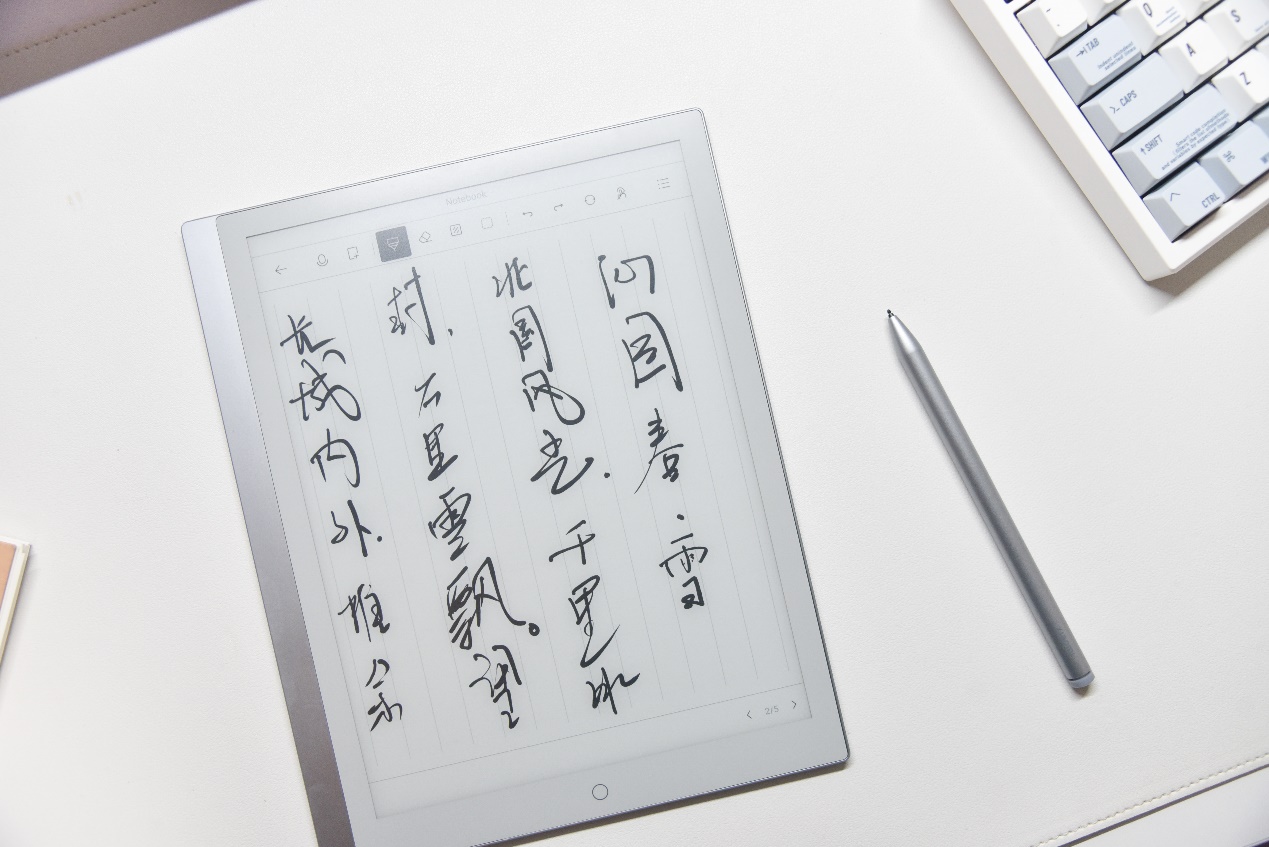 Notebook
沁园春·雪
北国风光.千里冰
封,万里雪飘。望
长城内外.惟余
2/5
Q
TAB
A
S
>_ CAPS
Z
SHIFT
CTRL